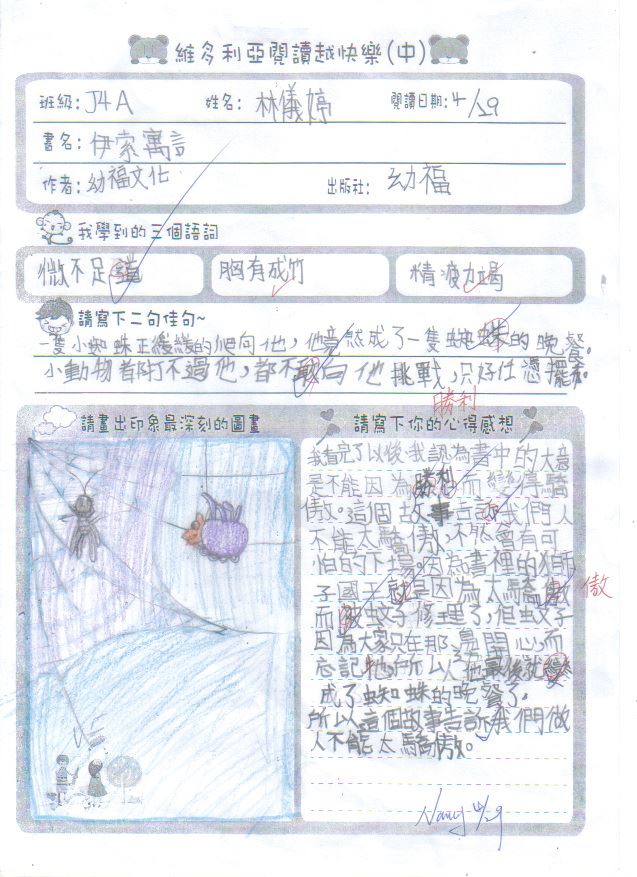 維多利亞閱讀越快樂(中)
班級: J4A 姓名: 林儀婷 閱讀日期: 4/29
書名: 伊索寓言
作者: 幼福文化 出版社: 幼福
我學到的三個語詞
微不足道 胸有成竹 精疲力竭
請寫下二句佳句~
一隻小蜘蛛正緩緩的爬向他,他竟然成了一隻蜘蛛的晚餐。
小動物皆打不過他,都不敢向他挑戰,只好任憑擺布。
勝利
請畫出印象最深刻的圖畫 請寫下你的心得感想
我看完了以後,我認為書中的大意
是不能因為勝利而驕
傲。這個故事告訴我們人
不能太驕傲,不然會有可
怕的下場。因為書裡的獅
子國王就是因為太驕傲 傲
而被蚊子修理了,但蚊子
因為大家只在那開心,而
忘記牠,所以他最後就變
成了蜘蛛的晚餐了。
所以這個故事告訴我們做
人不能太驕傲。
Nancy 4/29